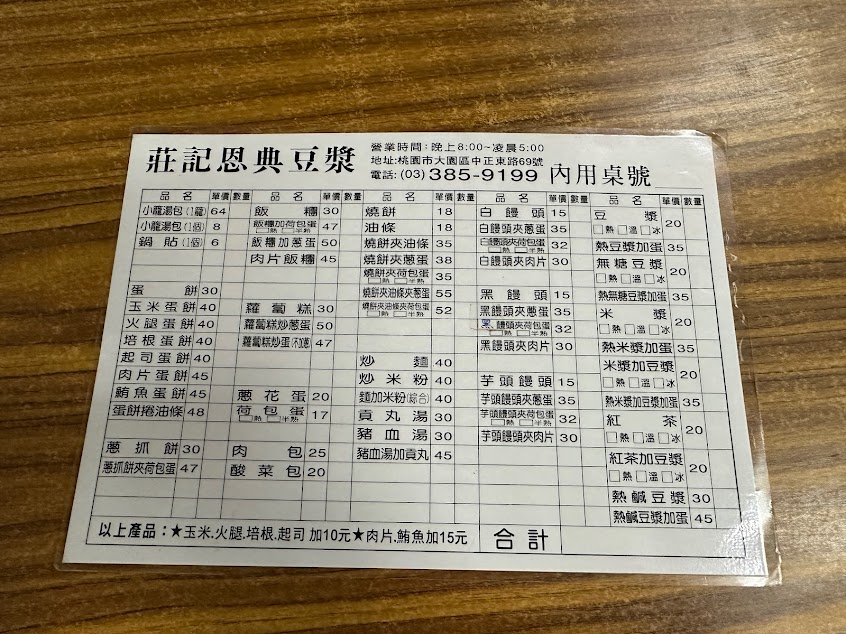 莊記恩典豆漿
營業時間:晚上8:00~凌晨5:00
地址:桃園市大園區中正東路69號
電話:(03)385-9199
內用桌號
品名 單價 數量
小籠湯包(1籠) 64
小籠湯包(1個) 8
鍋貼(1個) 6
蛋餅 30
玉米蛋餅 40
火腿蛋餅 40
培根蛋餅 40
起司蛋餅 40
肉片蛋餅 45
鮪魚蛋餅 45
蛋餅捲油條 48
蔥抓餅 30
蔥抓餅夾荷包蛋 47
品名 單價 數量
飯糰 30
飯糰加荷包蛋 47
□熟 □半熟
飯糰加蔥蛋 50
肉片飯糰 45
蘿蔔糕 30
蘿蔔糕炒蔥蛋 50
蘿蔔糕炒蛋(不加蔥) 47
蔥花蛋 20
荷包蛋 17
□熟 □半熟
肉包 25
酸菜包 20
品名 單價 數量
燒餅 18
油條 18
燒餅夾油條 35
燒餅夾蔥蛋 38
燒餅夾荷包蛋 35
□熟 □半熟
燒餅夾油條夾蔥蛋 55
燒餅夾油條夾荷包蛋 52
□熟 □半熟
炒麵 40
炒米粉 40
麵加米粉(綜合) 40
貢丸湯 30
豬血湯 30
豬血湯加貢丸 45
品名 單價 數量
白饅頭 15
白饅頭夾蔥蛋 35
白饅頭夾荷包蛋 32
□熟 □半熟
白饅頭夾肉片 30
黑饅頭 15
黑饅頭夾蔥蛋 35
黑饅頭夾荷包蛋 32
□熟 □半熟
黑饅頭夾肉片 30
芋頭饅頭 15
芋頭饅頭夾蔥蛋 35
芋頭饅頭夾荷包蛋 32
□熟 □半熟
芋頭饅頭夾肉片 30
品名 單價 數量
豆漿 20
□熱 □溫 □冰
熱豆漿加蛋 35
無糖豆漿 20
□熱 □溫 □冰
熱無糖豆漿加蛋 35
米漿 20
□熱 □溫 □冰
熱米漿加蛋 35
米漿加豆漿 20
□熱 □溫 □冰
熱米漿加豆漿加蛋 35
紅茶 20
□熱 □溫 □冰
紅茶加豆漿 20
□熱 □溫 □冰
熱鹹豆漿 30
熱鹹豆漿加蛋 45
以上產品:★玉米.火腿.培根.起司 加10元★肉片.鮪魚加15元
合計